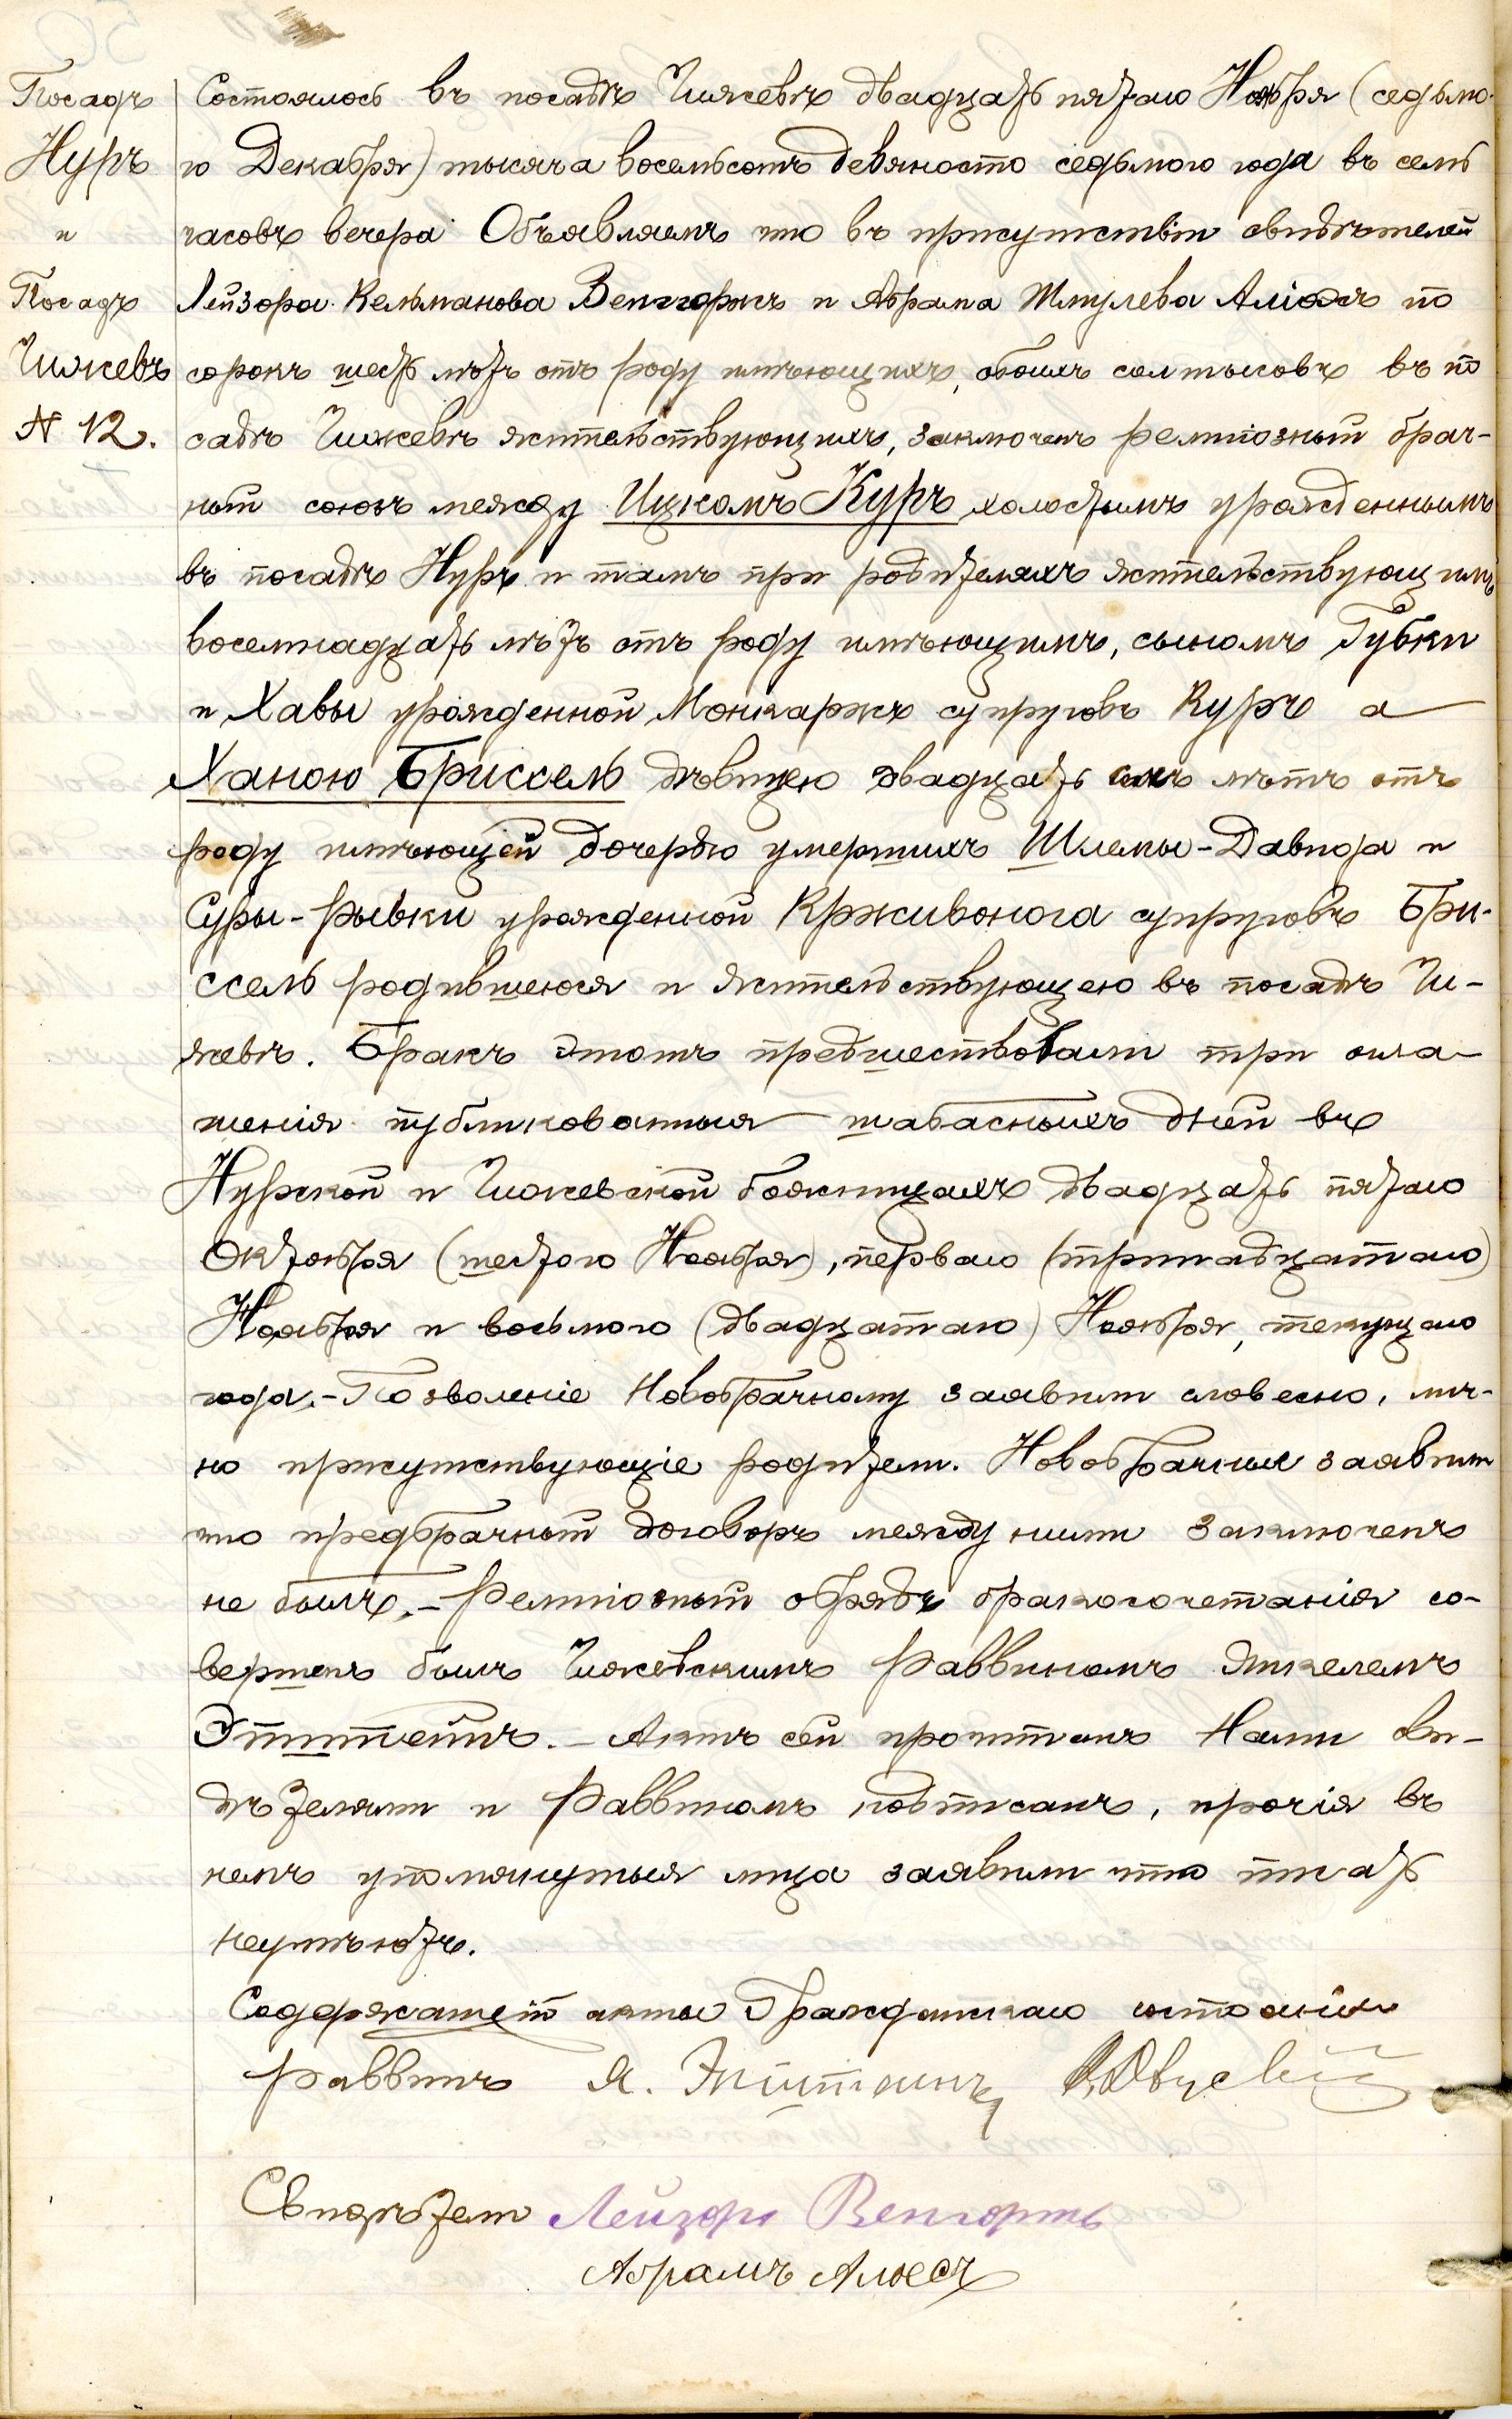 Посадъ
Нуръ
и
Посадъ
Чижевъ
№ 12.
Состоялось въ посадѣ Чижевѣ двадцать пятаго Ноября (седьмо-
го Декабря) тысяча восемьсотъ девяносто седьмого года въ семь
часовъ вечера Объявляемъ что въ присутствіи свидѣтелей
Лейзора Кельманова Венгоржъ и Абрама Шмулева Аліасъ по
сорокъ шесть лѣтъ отъ роду имѣющихъ, обоихъ солтысовъ въ по
садѣ Чижевѣ жительствующихъ, заключенъ религіозный брач-
ный союзъ между Ицкомъ Куръ холостымъ урожденнымъ
въ посадѣ Нуръ и тамъ при родителяхъ жительствующимъ
восемнадцать лѣтъ отъ роду имѣющимъ, сыномъ Губки
и Хавы урожденной Монкаржъ супруговъ Куръ а
Ханою Бриссель дѣвицею двадцать лѣтъ отъ
роду имѣющей дочерью умершихъ Шлемы-Давида и
Суры-Рывки урожденной Крживонога супруговъ Бри-
ссель родившеюся и жительствующею въ посадѣ Чи-
жевѣ. Бракъ этотъ предшествовали три огла-
шенія публикованныя шабасныхъ дней въ
Нурской и Чижевской божницахъ двадцать пятаго
Октября (шестого Ноября), перваго (тринадцатаго)
Ноября и восьмого (двадцатаго) Ноября, текущаго
года.- Позволеніе Новобрачному заявили словесно, лич-
но присутствующіе родители. Новобрачныя заявили
что предбрачный договоръ между ними заключенъ
не былъ.- Религіозный обрядъ бракосочетанія со-
вершенъ былъ Чижевскимъ Раввиномъ Янкелемъ
Эпштейнъ.- Актъ сей прочитанъ Нами сви-
дѣтелями и Раввиномъ подписанъ, прочія въ
немъ упомянутыя лица заявили что писать
неумѣютъ.
Содержащій акты Гражданскаго состоянія
Раввинъ Я. Эпштейнъ
Свидѣтели Лейзоръ Венгоржъ
Абрамъ Аліесъ